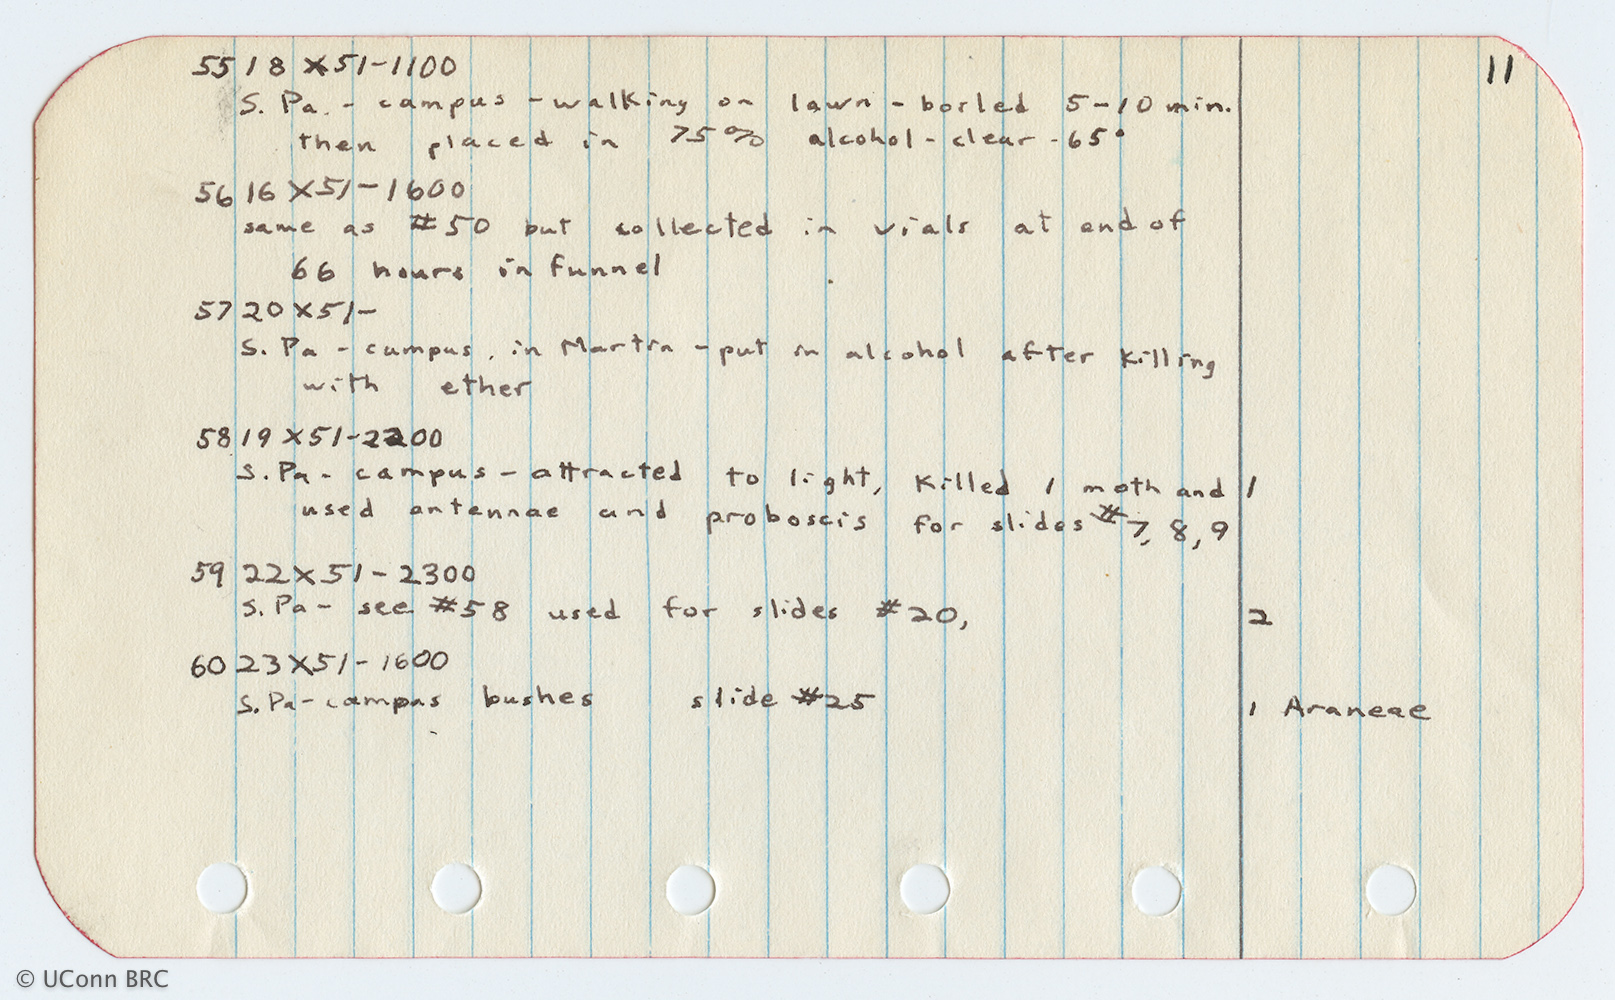 11
55 18 X 51-1100
S. Pa. - campus - walking on lawn - boiled 5-10 min.
then placed in 75% alcohol - clear - 65°
56 16 X 51-1600
same as #50 but collected in vials at end of
66 hours in funnel
57 20 X 51-
S. Pa - campus, in Martin - put in alcohol after killing
with ether
58 19 X 51-2200
S. Pa - campus - attracted to light, killed 1 moth and 1
used antennae and proboscis for slides #7, 8, 9
59 22 X 51-2300
S. Pa - see #58 used for slides #20, 2
60 23 X 51-1600
S. Pa - campus bushes slide #25 1 Araneae
© UConn BRC